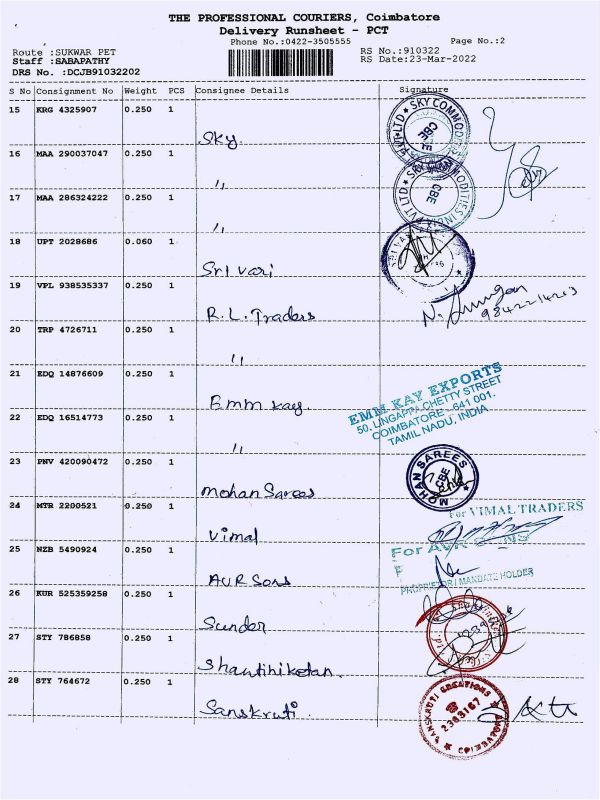 THE PROFESSIONAL COURIERS, Coimbatore
Delivery Runsheet - PCT
Phone No.:0422-3505555 Page No.:2
Route :SUKWAR PET RS No.:910322
Staff :SABAPATHY RS Date:23-Mar-2022
DRS No. :DCJB91032202
S No Consignment No Weight PCS Consignee Details Signature
15 KRG 4325907 0.250 1
Sky.
SKY COMMODITIES
PVT LTD
CBE
16 MAA 290037047 0.250 1
"
17 MAA 286324222 0.250 1
PVT LTD
CBE
"
18 UPT 2028686 0.060 1
Sri vari
19 VPL 938535337 0.250 1
R.L. Traders
20 TRP 4726711 0.250 1
"
21 EDQ 14876609 0.250 1
Emm kay.
EMM KAY EXPORTS
50, LINGAPPA CHETTY STREET
COIMBATORE - 641 001.
TAMIL NADU, INDIA
22 EDQ 16514773 0.250 1
"
23 PNV 420090472 0.250 1
Mohan Sarees
MOHAN SAREES
CBE
24 MTR 2200521 0.250 1
Vimal
For VIMAL TRADERS
25 NZB 5490924 0.250 1
AVR Sons
For AVR
PROPRIETOR / MANDATE HOLDER
26 KUR 525359258 0.250 1
Sunder
27 STY 786858 0.250 1
Shantiniketan.
28 STY 764672 0.250 1
Sanskruti.
SANSKRUTI CREATIONS
2388167
COIMBATORE